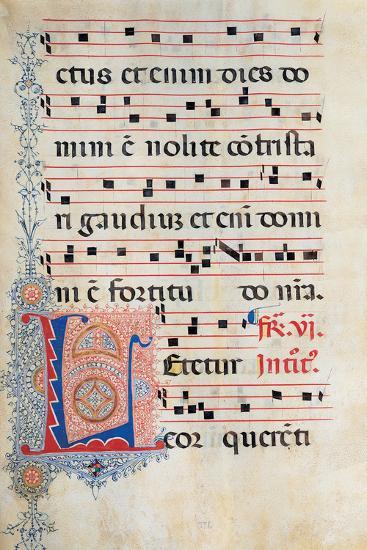 ctus et enim dies do
mini ē nolite cōtrista
ri gaudium et eīī domi
ni ē fortitu do nrā.
fr̄. vj.
L etetur Introit9.
cor querēti